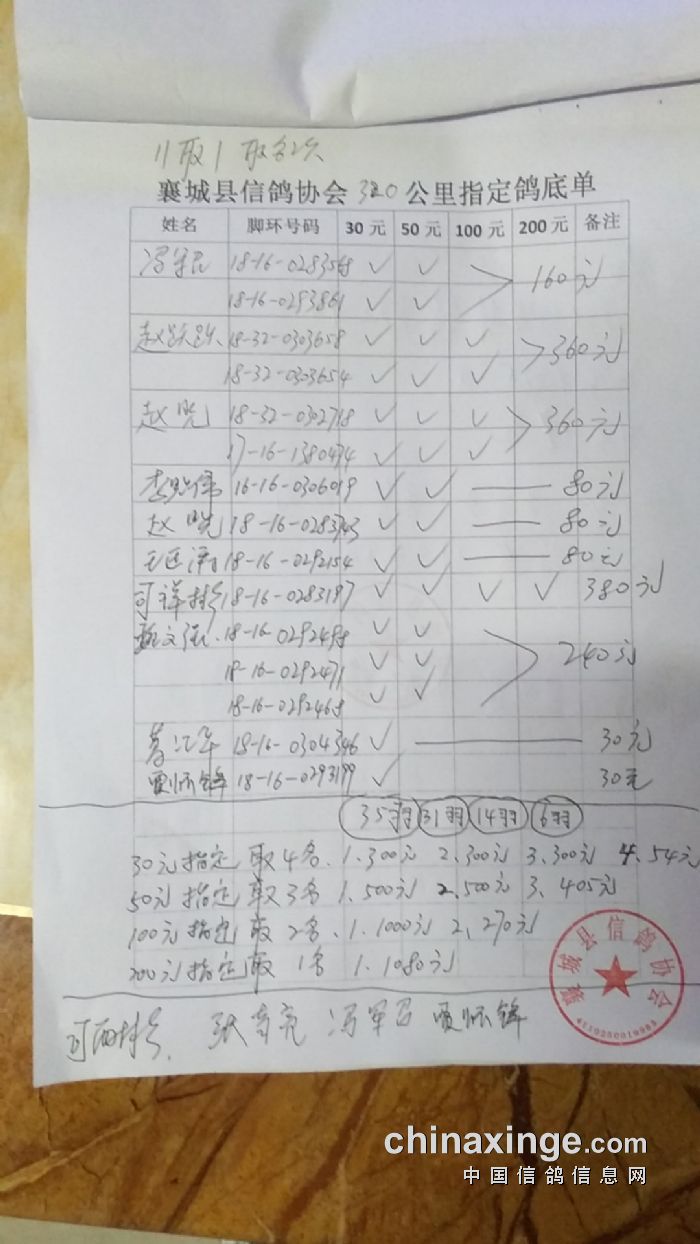 11取1
襄城县信鸽协会 320 公里指定鸽底单
姓名 脚环号码 30元 50元 100元 200元 备注
18-16-0283568 ✓ ✓
18-16-0293861 ✓ ✓ 160元
赵跃跃 18-32-0303658 ✓ ✓ ✓
18-32-0303654 ✓ ✓ ✓ 360元
赵晓 18-32-0302718 ✓ ✓ ✓
17-16-1380474 ✓ ✓ ✓ 360元
16-16-0306019 ✓ ✓ — 80元
赵晓 18-16-0283743 ✓ ✓ — 80元
18-16-0292154 ✓ ✓ — 80元
18-16-0283197 ✓ ✓ ✓ ✓ 380元
18-16-0292498 ✓ ✓
18-16-0292471 ✓ ✓ 240元
18-16-0292468 ✓ ✓
18-16-0304346 ✓ — 30元
贾怀锋 18-16-0293199 ✓ 30元
35羽 31羽 14羽 6羽
30元指定 取4名. 1.300元 2.300元 3.300元 4.54元
50元指定 取3名 1.500元 2.500元 3.405元
100元指定 取2名. 1.1000元 2.270元
200元指定取 1名 1.1080元
襄城县信鸽协会
贾怀锋
chinaxinge.com
中国信鸽信息网